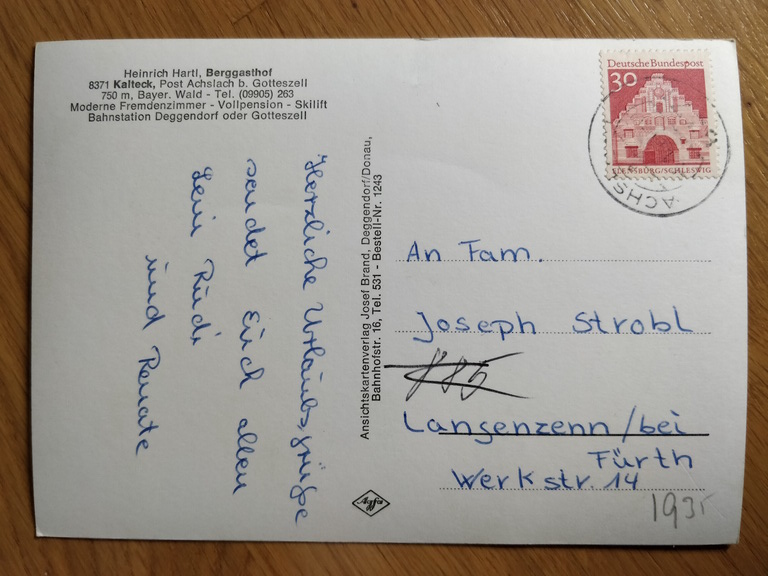 Heinrich Hartl, Berggasthof
8371 Kalteck, Post Achslach b. Gotteszell
750 m, Bayer. Wald - Tel. (09905) 263
Moderne Fremdenzimmer - Vollpension - Skilift
Bahnstation Deggendorf oder Gotteszell
Herzliche Urlaubsgrüße
sendet Euch allen
Rudi
und Renate
Ansichtskartenverlag Josef Brand, Deggendorf/Donau,
Bahnhofstr. 16, Tel. 531 - Bestell-Nr. 1243
Agfa
Deutsche Bundespost
30
FLENSBURG/SCHLESWIG
ACHS
An Fam.
Joseph Strobl
Langenzenn/bei
Fürth
Werkstr. 14